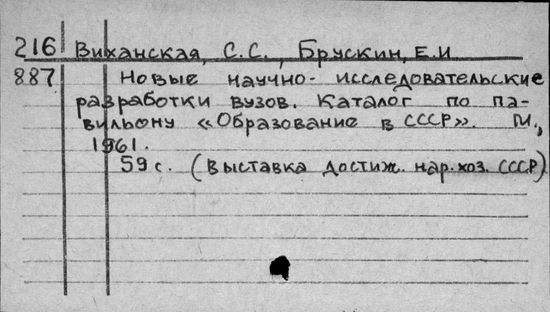 216 Виханская, С.С., Брускин, Е.И
887 Новые научно-исследовательские
разработки вузов. Каталог по па-
вильону «Образование в СССР». М.,
1961.
59 с. (Выставка достиж. нар. хоз. СССР)